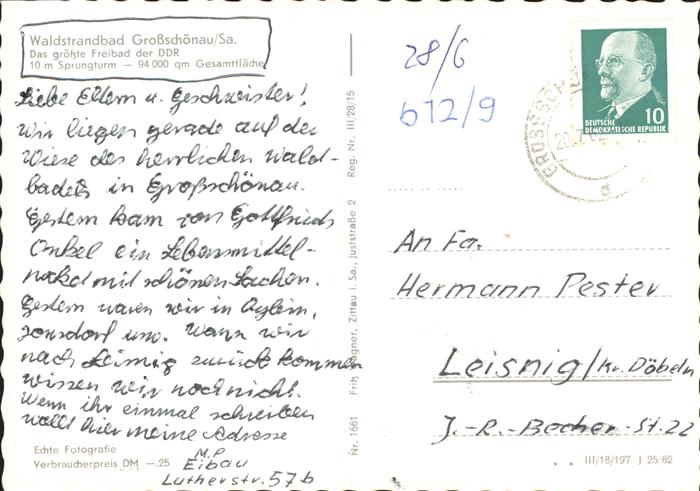 Waldstrandbad Großschönau/Sa.
Das größte Freibad der DDR
10 m Sprungturm — 94 000 qm Gesamtfläche
Liebe Eltern u. Geschwister!
Wir liegen gerade auf der
Wiese des herrlichen Wald-
bades in Großschönau.
Gestern kam von Gottfrieds
Onkel ein Lebensmittel-
mit schönen Sachen.
Gestern waren wir in
Jonsdorf usw. Wann wir
nach Leisnig zurück kommen
wissen wir noch nicht.
Wenn ihr einmal schreiben
wollt hier meine Adresse
M.P
Eibau
Lutherstr. 57b
Echte Fotografie
Verbraucherpreis DM —.25
Nr. 1661 Fritz Wagner, Zittau i. Sa., Juststraße 2 Reg. Nr. III/28/15
28/6
612/9
10
DEUTSCHE
DEMOKRATISCHE REPUBLIK
An Fa.
Hermann Pester
Leisnig/Kr. Döbeln
J.-R.-Becher-St. 22
III/18/197 | 25/62